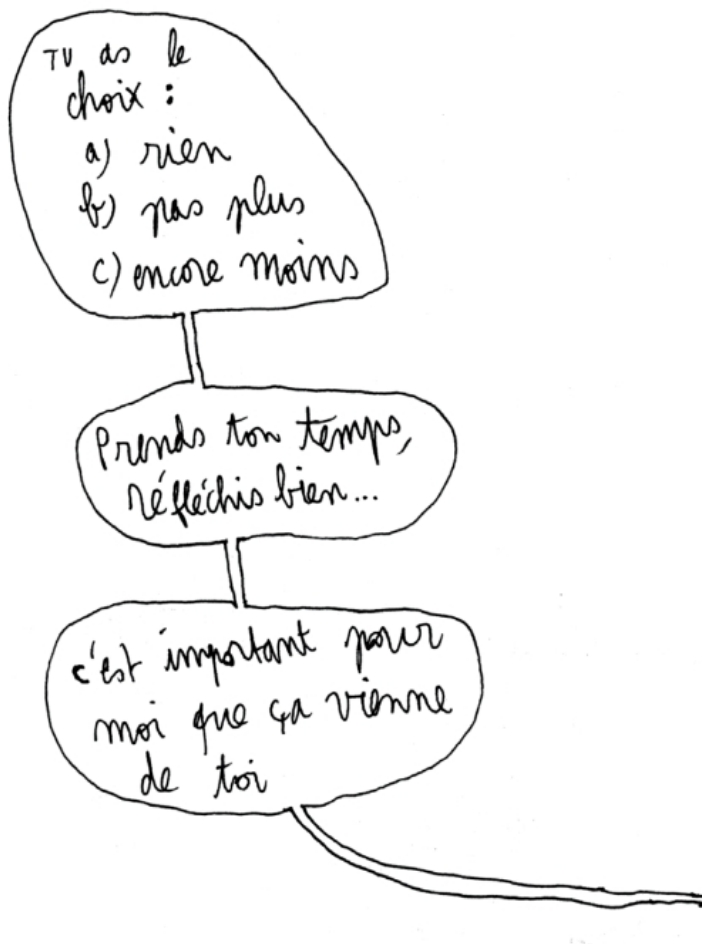 TU as le
choix :
a) rien
b) pas plus
c) encore moins
Prends ton temps,
réfléchis bien...
c'est important pour
moi que ça vienne
de toi